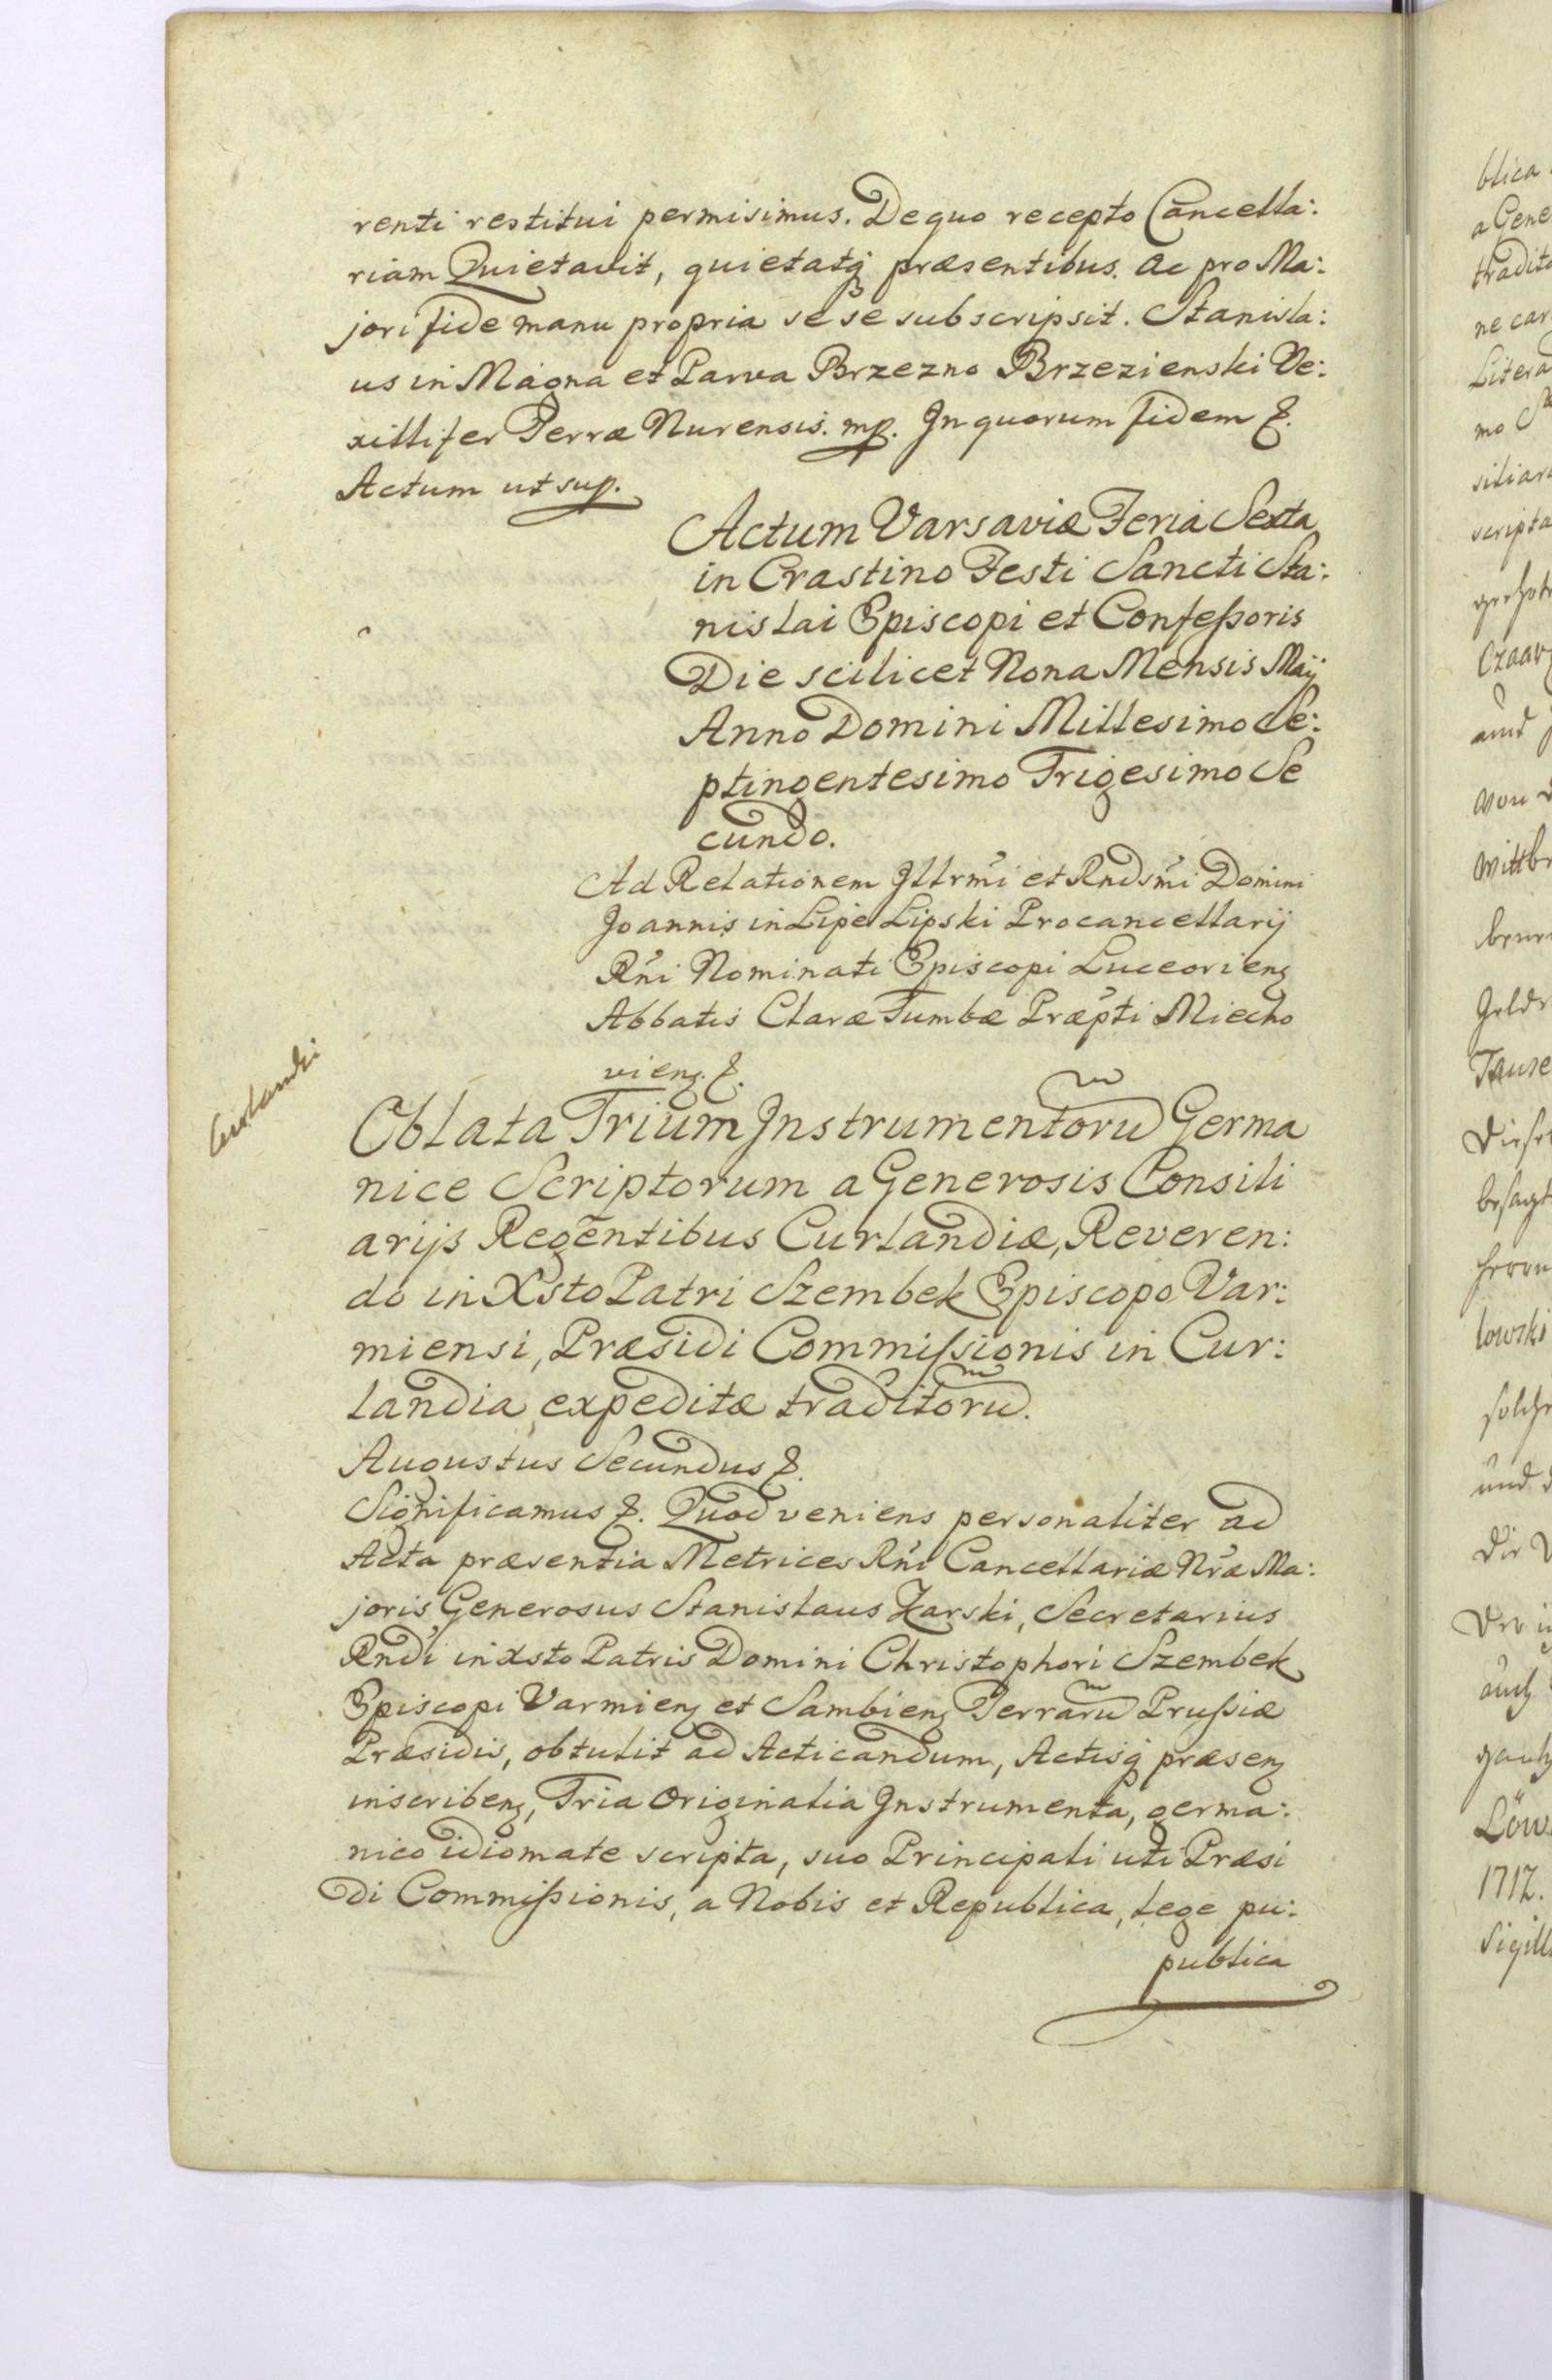 renti restitui permisimus. De quo recepto Cancella:
riam Quietavit, quietatq præsentibus. Ac pro Ma:
jori fide manu propria se se subscripsit. Stanisla:
us in Magna et Parva Brzezno Brzezienski Ve:
xillifer Terræ Nurensis. mp. In quorum fidem &.
Actum ut sup.
Actum Varsaviæ Feria Sexta
in Crastino Festi Sancti Sta:
nislai Episcopi et Confeßoris
Die scilicet Nona Mensis Maij
Anno Domini Millesimo Se:
ptingentesimo Trigesimo Se
cundo.
Ad Relationem Illrmi et Rndsmi Domini
Joannis in Lipe Lipski Procancellarij
Rni Nominati Episcopi Luceorienz
Abbatis Claræ Tumbæ Præpti Miecho
vienz. &.
Curlandi
Oblata Trium Instrumentoru Germa
nice Scriptorum a Generosis Consili
arijs Regentibus Curlandiæ, Reveren:
do in Xsto Patri Szembek Episcopo Var:
miensi, Præsidi Commißionis in Cur:
landia expeditæ traditoru.
Augustus Secundus &.
Significamus &. Quod veniens personaliter ad
Acta præsentia Metrices Rni Cancellariæ Nræ Ma:
joris Generosus Stanislaus Zarski, Secretarius
Rndi in Xsto Patris Domini Christophori Szembek
Episcopi Varmienz et Sambienz Terraru Prußiæ
Præsidis, obtulit ad Acticandum, Actisq præsenz
inscribenz, Tria Originalia Instrumenta, germa:
nico idiomate scripta, suo Principali uti Præsi
di Commißionis, a Nobis et Republica, lege pu:
publica
blica
a Gene
tradito
ne car
Litera
mo
siliar
scripta
Czaar
und
von
Wittb
Geld
Tause
besagt
lowski
und
die
auch
Löw
1717.
Sigill